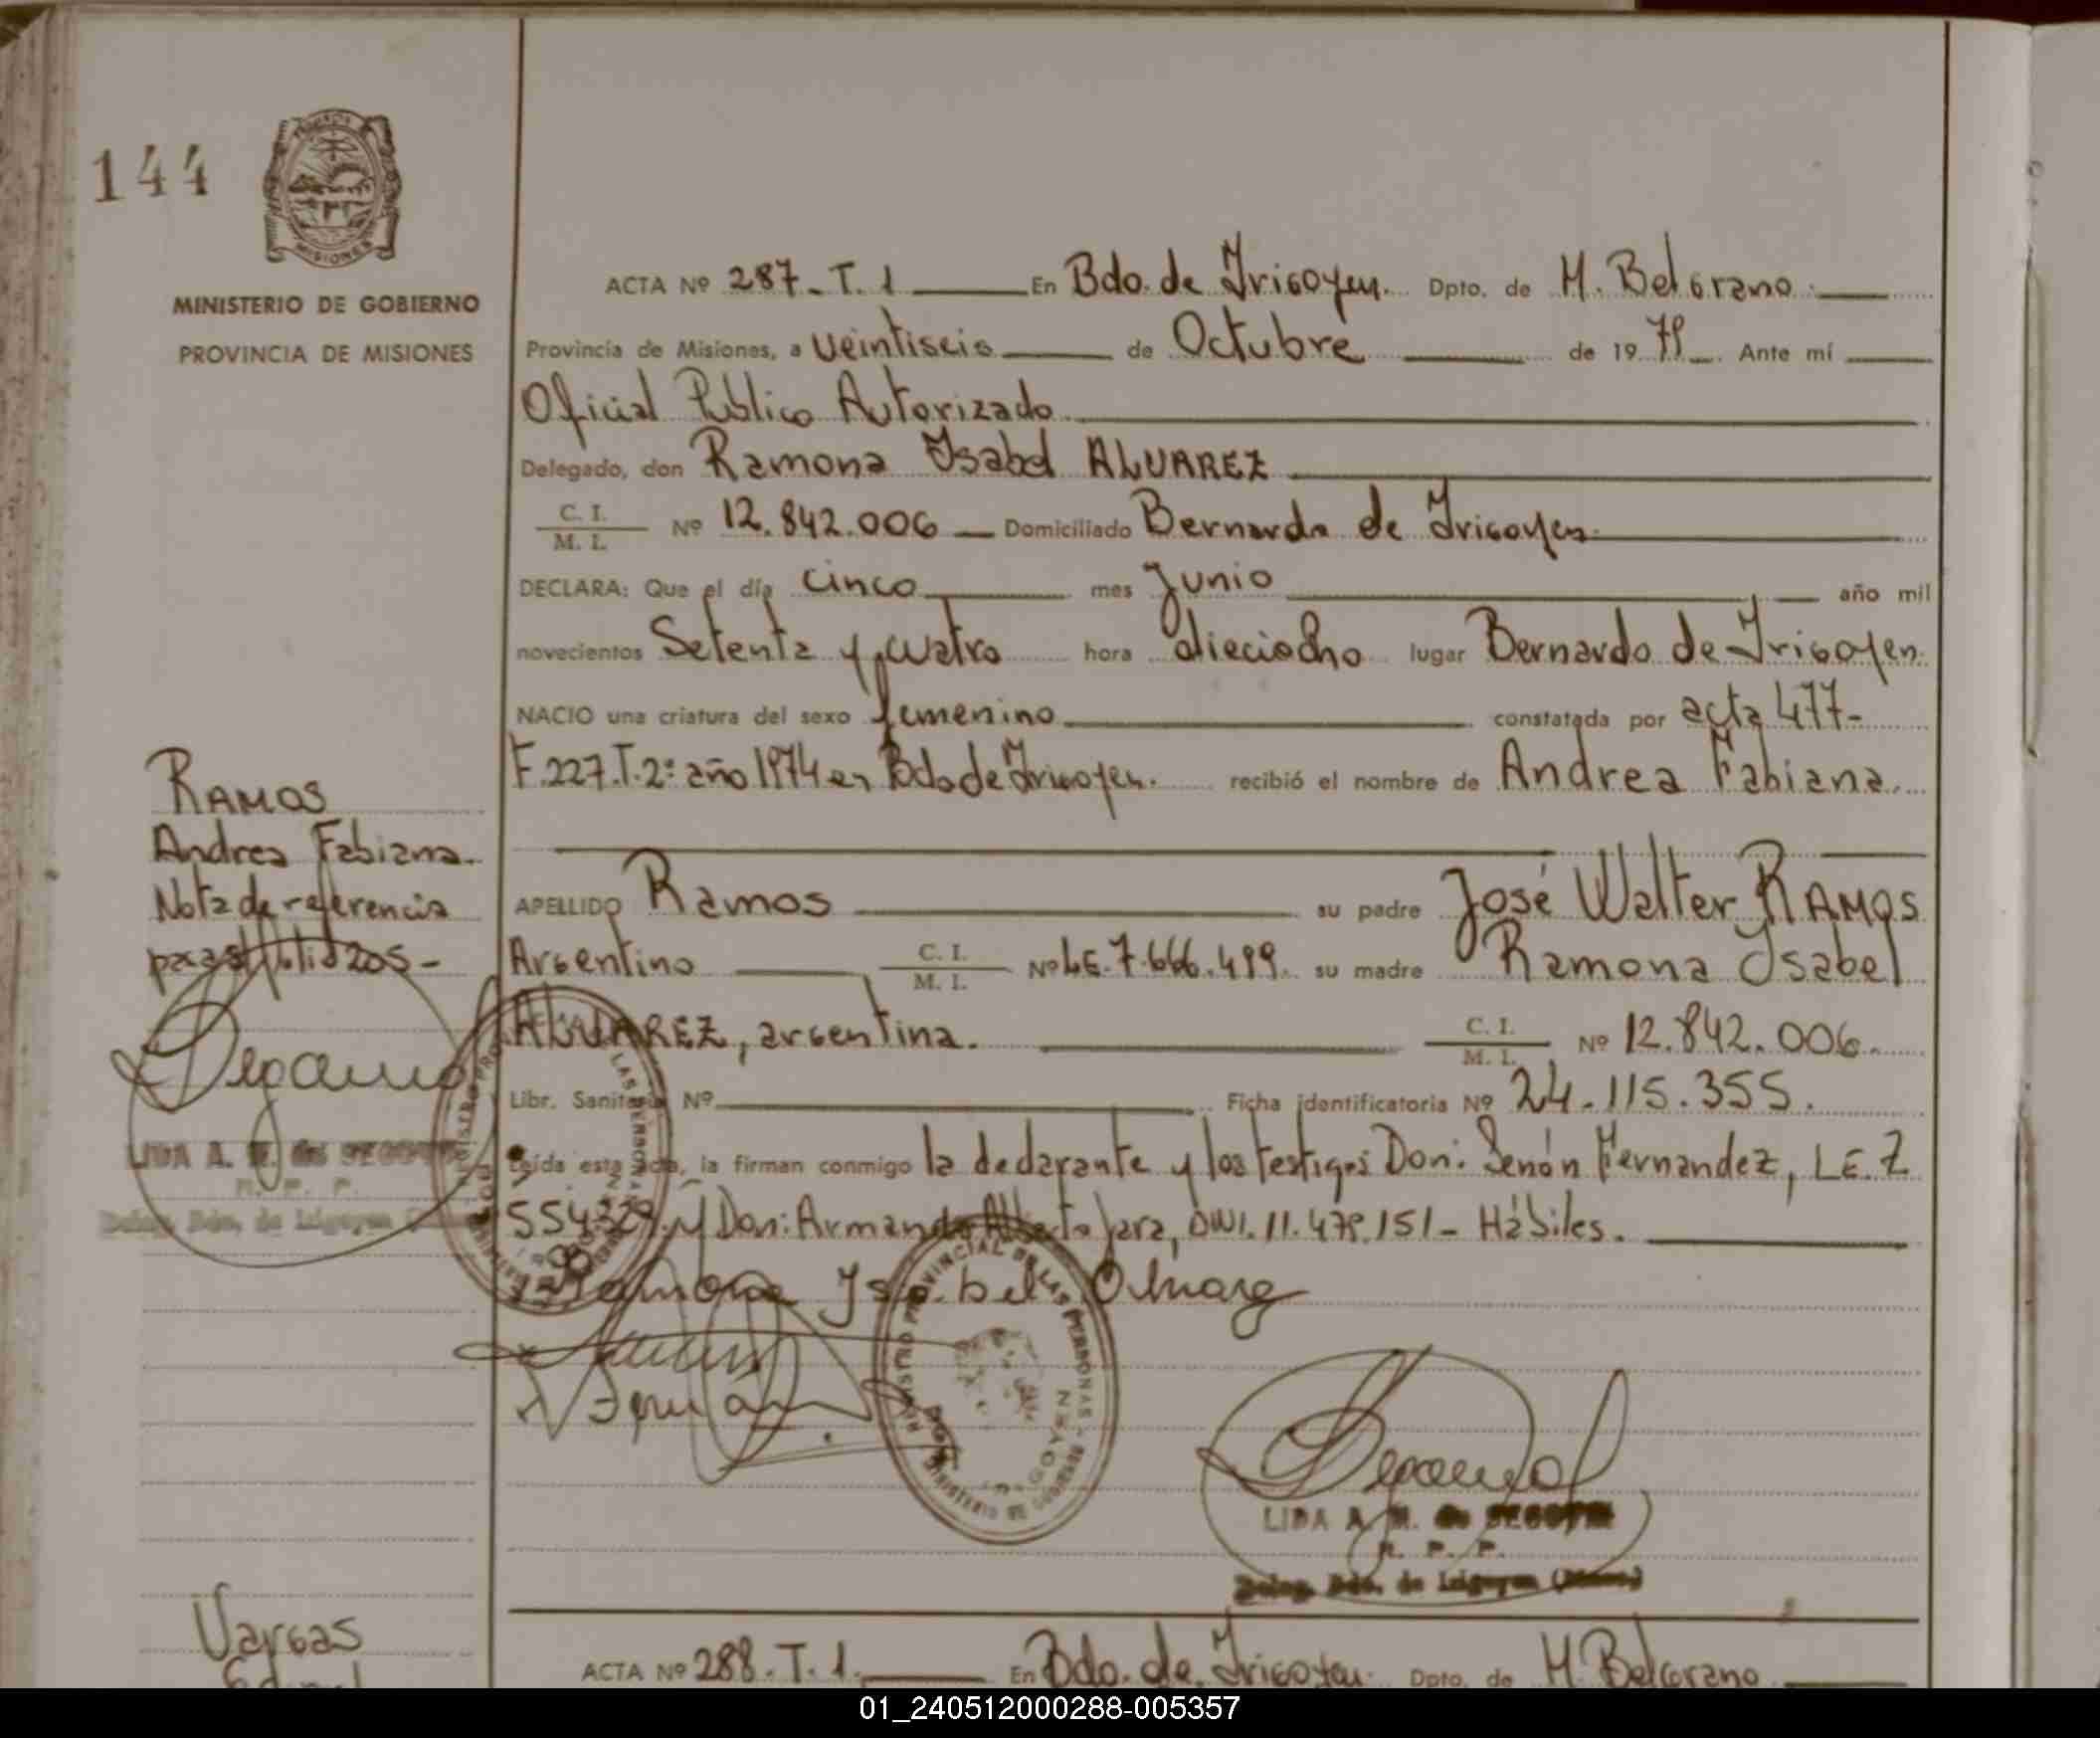 144
MISIONES
MINISTERIO DE GOBIERNO
PROVINCIA DE MISIONES
ACTA Nº 287-T.1 En Bdo. de Irigoyen. Dpto. de M. Belgrano.
Provincia de Misiones, a veintiseis de Octubre de 19 Ante mí
Oficial Público Autorizado
Delegado, don Ramona Ysabel ALVAREZ
C. I.
M. I. Nº 12.842.006 Domiciliado Bernardo de Irigoyen
DECLARA: Que el día cinco mes Junio año mil
novecientos Setenta y cuatro hora dieciocho lugar Bernardo de Irigoyen.
NACIO una criatura del sexo femenino constatada por acta 477-
F.227.T.2º año 1974 en Bdo de Irigoyen. recibió el nombre de Andrea Fabiana.
RAMOS
Andrea Fabiana.
Nota de referencia
APELLIDO Ramos su padre José Walter RAMOS
Argentino C. I. M. I. Nº LE.7.666.499. su madre Ramona Isabel
ALVAREZ, argentina. C. I. M. I. Nº 12.842.006.
Libr. Sanitaria Nº Ficha identificatoria Nº 24.115.355.
Leída esta acta, la firman conmigo la declarante y los testigos Don: Senón Fernandez, LE.7
554329 y Don: Armando Alberto Jara, DNI. 11.479.151- Hábiles.
Ramona Ysabel Alvarez
LIDA A. M. de
R. P. P.
Deleg. Bdo. de Irigoyen
REGISTRO PROVINCIAL DE LAS PERSONAS
MINISTERIO DE GOBIERNO
IRIGOYEN
LIDA A. M. de
R. P. P.
Deleg. Bdo. de Irigoyen
Vargas
ACTA Nº 288.T.1. En Bdo. de Irigoyen. Dpto. de M. Belgrano
01_240512000288-005357